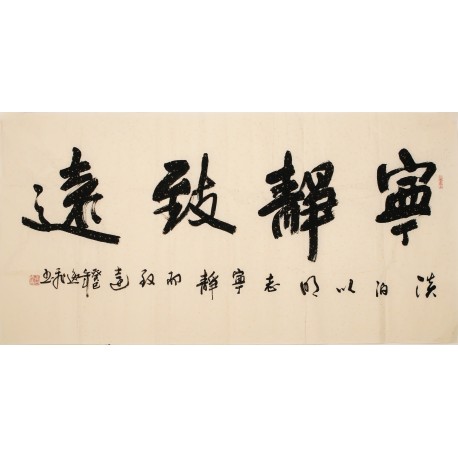 寧靜致遠
淡泊以明志寧靜而致遠癸巳年